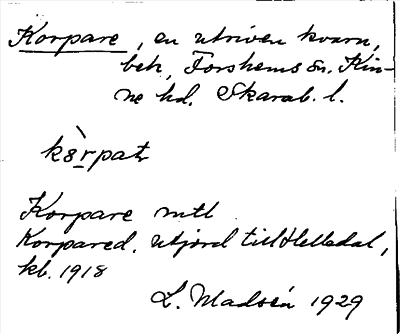 Korpare, en utriven kvarn,
bek, Forshems sn. Kin-
ne hd. Skarab. l.
Korpare mtl
Korpared, utjord till Helledal,
kb. 1918
L. Madsén 1929